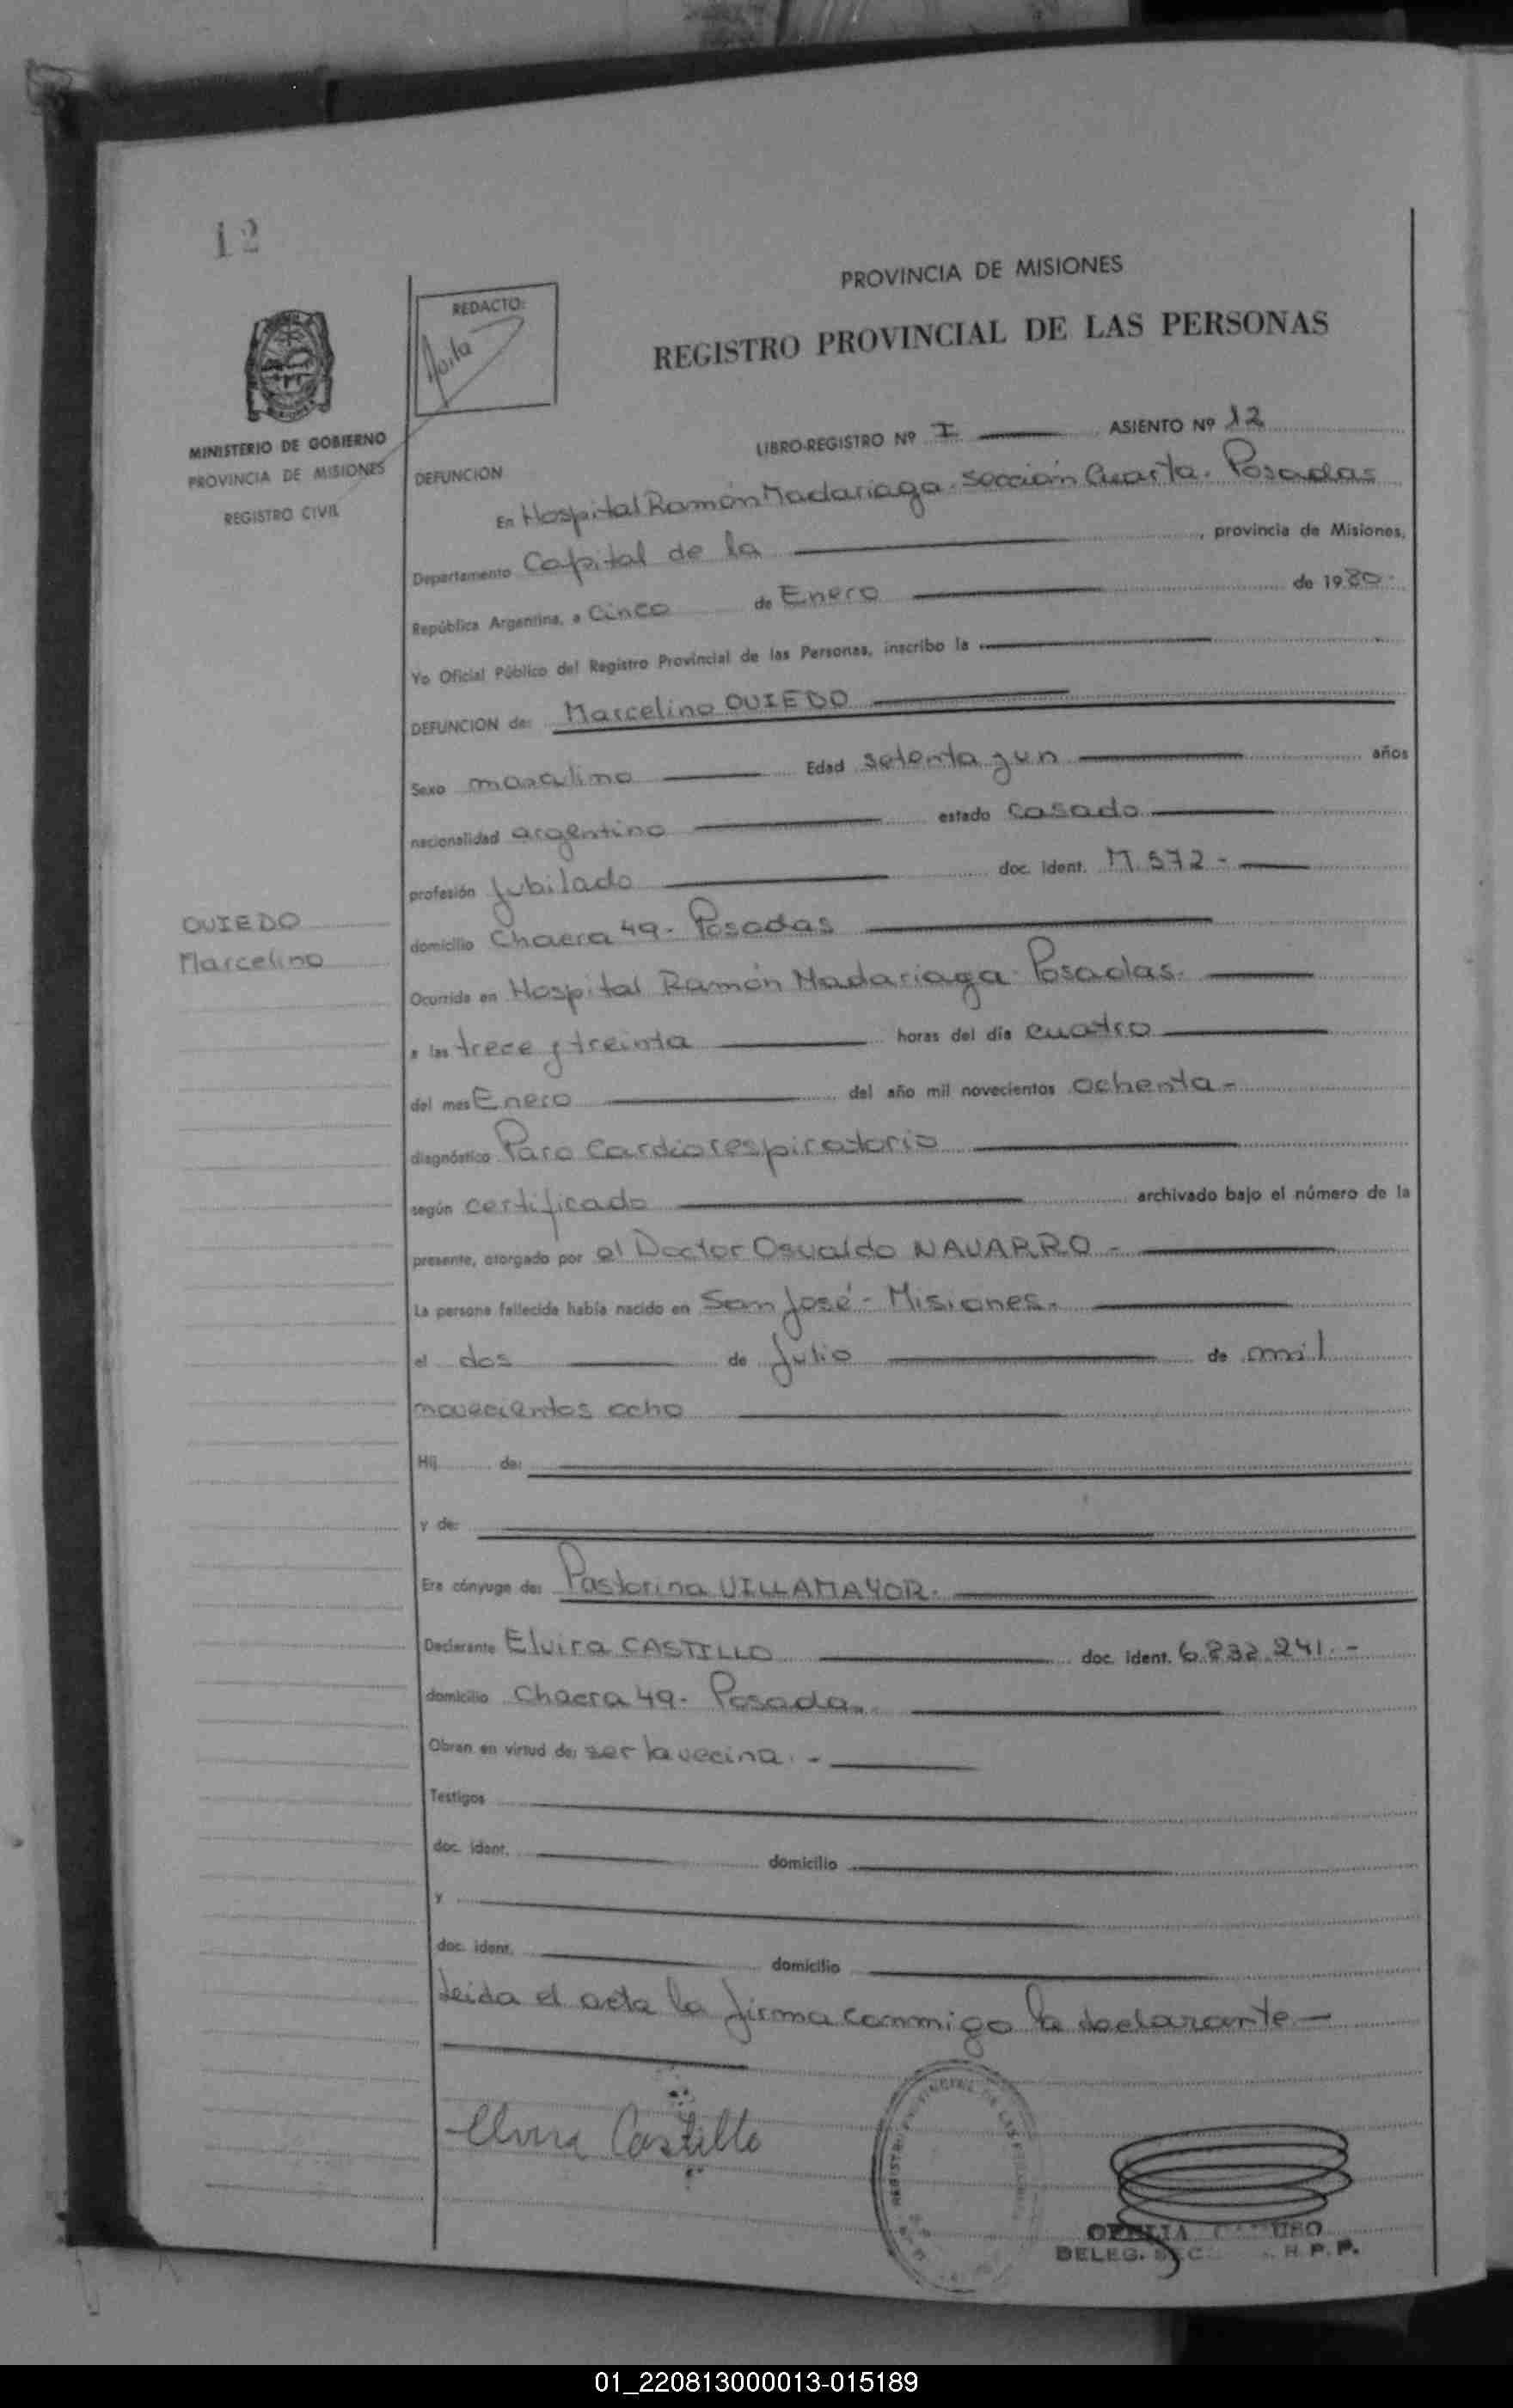 12
PROVINCIA DE MISIONES
REDACTO:
REGISTRO PROVINCIAL DE LAS PERSONAS
MINISTERIO DE GOBIERNO
PROVINCIA DE MISIONES
REGISTRO CIVIL
LIBRO-REGISTRO Nº I ASIENTO Nº 12
DEFUNCION
En Hospital Ramón Madariaga. Sección Cuarta. Posadas
Departamento Capital de la , provincia de Misiones,
República Argentina, a Cinco de Enero de 1980.
Yo Oficial Público del Registro Provincial de las Personas, inscribo la
DEFUNCION de: Marcelino OVIEDO
Sexo masculino Edad setenta y un años
nacionalidad argentino estado casado
profesión Jubilado doc. ident. M. 572-
OVIEDO
Marcelino
domicilio Chacra 49- Posadas
Ocurrida en Hospital Ramón Madariaga. Posadas.
a las trece y treinta horas del día cuatro
del mes Enero del año mil novecientos ochenta-
diagnóstico Paro Cardiorespiratorio
según certificado archivado bajo el número de la
presente, otorgado por el Doctor Osvaldo NAVARRO-
La persona fallecida había nacido en San José- Misiones.
el dos de Julio de mil
novecientos ocho
Hij de:
y de:
Era cónyuge de: Pastorina VILLAMAYOR.
Declarante Elvira CASTILLO doc. ident. 6.832.241.-
domicilio Chacra 49- Posadas
Obran en virtud de: ser la vecina.-
Testigos
doc. ident. domicilio
y
doc. ident. domicilio
Leida el acta la firma conmigo la declarante-
Elvira Castillo
OFELIA
DELEG. SEC. R. P. P.
01_220813000013-015189